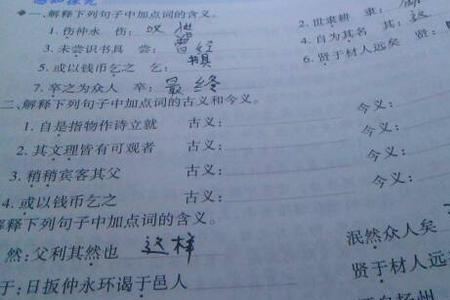 一、解释下列句子中加点词的含义。
1. 伤仲永 伤：叹
2. 世隶耕 隶：
3. 未尝识书具 尝：曾经
4. 自为其名 其：这
5. 或以钱币乞之 乞：
6. 贤于材人远矣 贤：
7. 卒之为众人 卒：最终
二、解释下列句子中加点词的古义和今义。
1. 自是指物作诗立就 古义： 今义：
2. 其文理皆有可观者 古义： 今义：
3. 稍稍宾客其父 古义： 今义：
4. 或以钱币乞之 古义： 今义：
解释下列句子中加点词的含义。
然：父利其然也 这样 泯然众人矣
于：日扳仲永环谒于邑人 贤于材人远